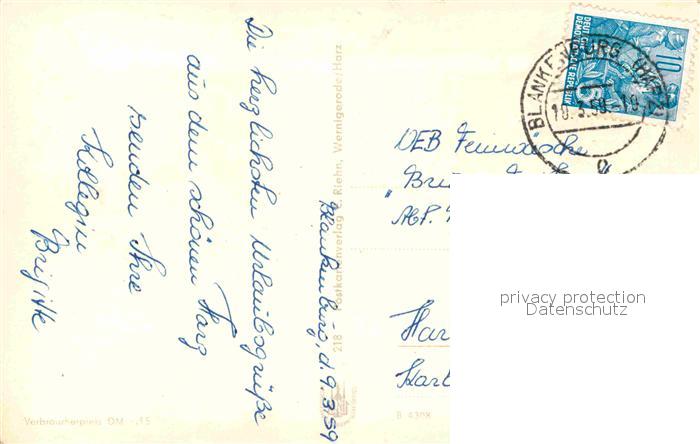 Blankenburg, d. 9.3.59
Die herzlichsten Urlaubsgrüße
aus dem schönen Harz
senden Ihre
Kollegin
Brigitte
Verbraucherpreis DM -,15
218 Postkartenverlag E. Riehn, Wernigerode/Harz
B 4308
10
DEUTSCHE
DEMOKRATISCHE REPUBLIK
BLANKENBURG (HARZ)
10.3.59-10
g
VEB Feinwäsche
"Bru
Abt.
Har
Karl
privacy protection
Datenschutz